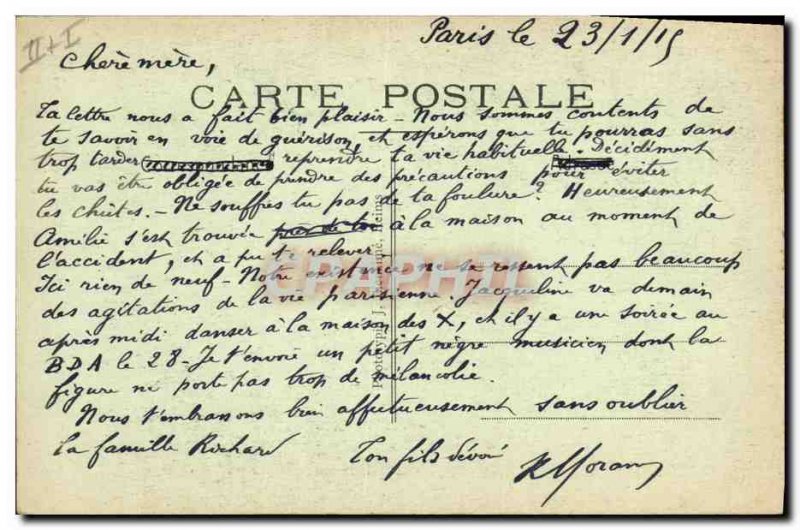 II + I
Paris le 23/1/15
Chère mère,
CARTE POSTALE
Ta lettre nous a fait bien plaisir - Nous sommes contents de
te savoir en voie de guérison, et espérons que tu pourras sans
trop tarder reprendre ta vie habituelle. Décidément
tu vas être obligée de prendre des précautions pour éviter
les chûtes. - Ne souffres tu pas de ta foulure ? Heureusement
Amélie s'est trouvée près de toi à la maison au moment de
l'accident, et a pu te relever.
Ici rien de neuf - Notre existence ne se ressent pas beaucoup
des agitations de la vie parisienne. Jacqueline va demain
après midi danser à la maison des X, et il y a une soirée au
BDA le 28 - Je t'envoie un petit nègre musicien dont la
figure ne porte pas trop de mélancolie.
Nous t'embrassons bien affectueusement sans oublier
la famille Richard
Ton fils dévoué
Reims
CPAPHIL